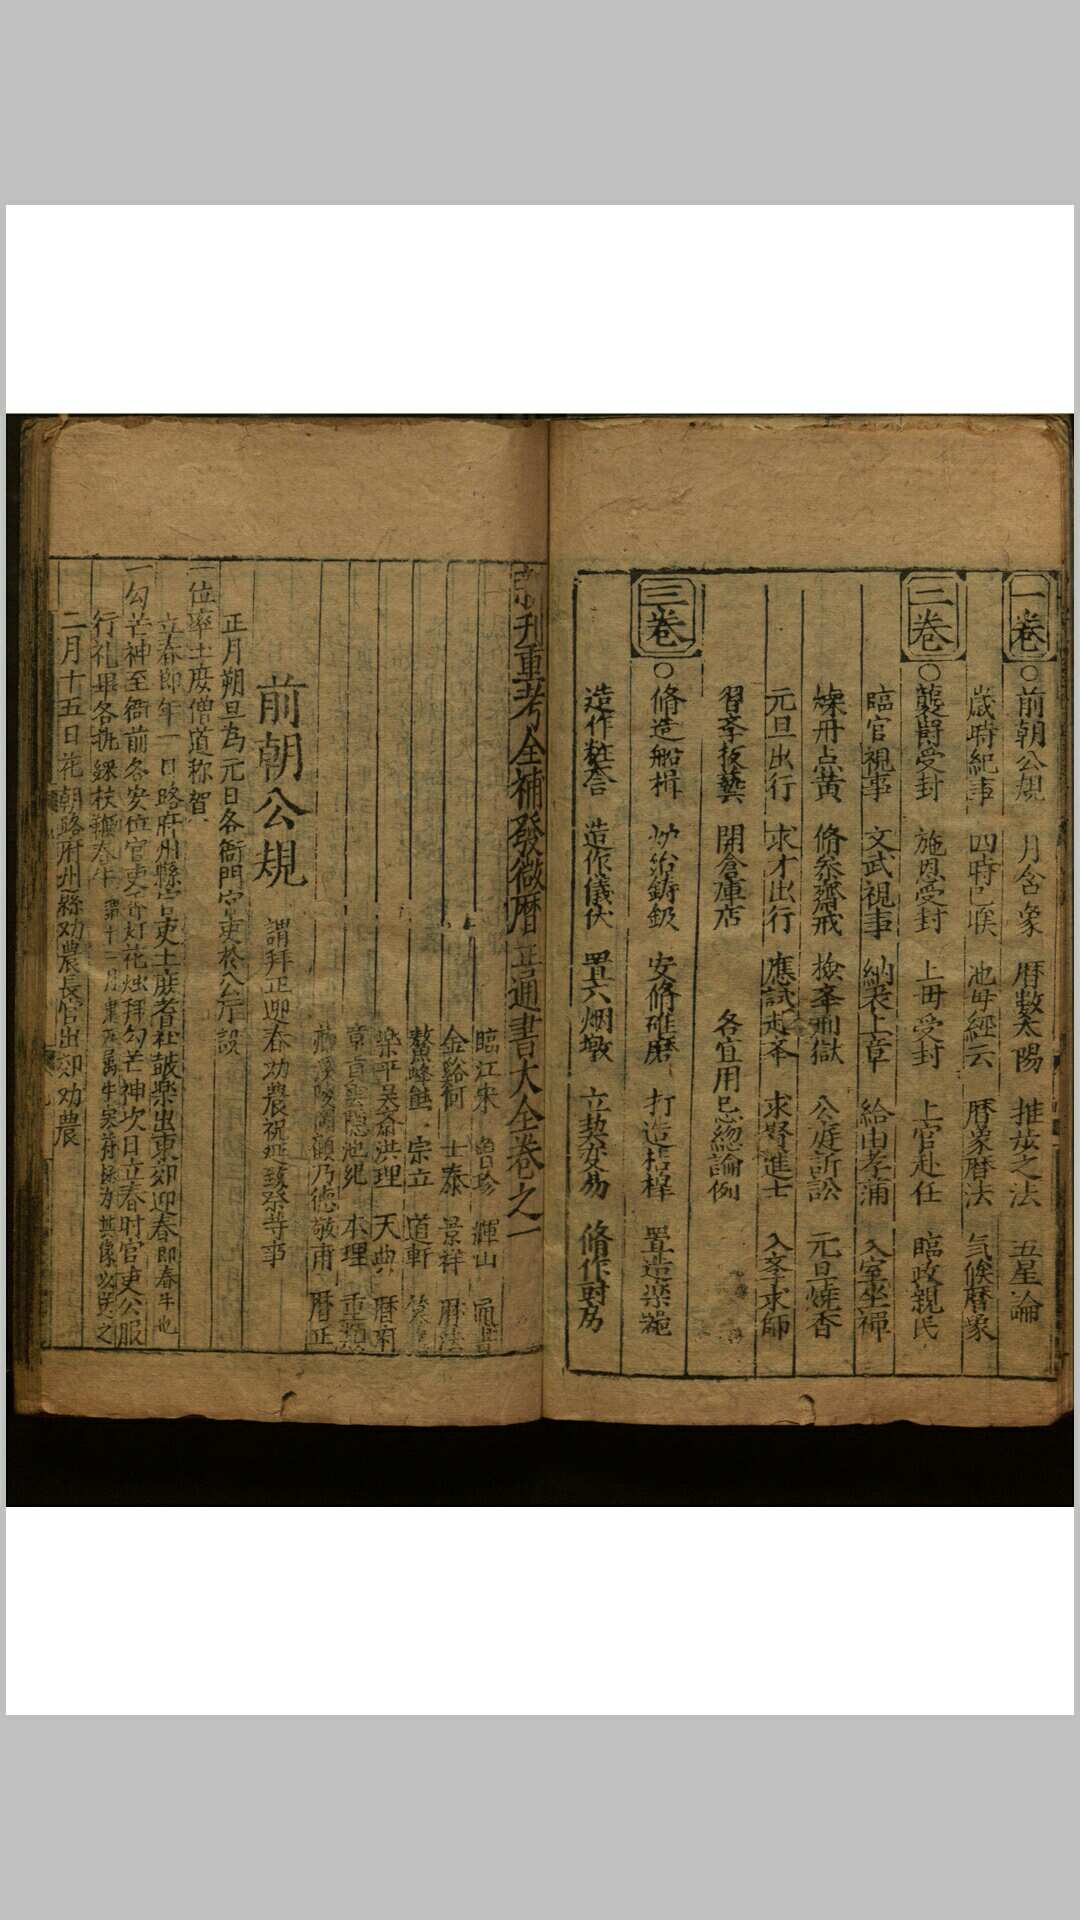 一卷○前朝公規 月含象 曆數太陽 推玄之法 五星論
歲時紀事 四時 池毋經云 曆象曆法 気候曆象
二卷○襲爵受封 施恩受封 上毋受封 上官赴任 臨政親民
臨官視事 文武視事 納表上章 給由考滿 入室坐禅
煉丹点黄 脩祭齋戒 撿举刑獄 公庭訴訟 元旦燒香
元旦出行 求才出行 應試赴举 求賢進士 入斈求師
習斈技藝 開倉庫店 各宜用忌總論例
三卷○脩造船楫 炉冶鋳 安脩碓磨 打造桔槹 置造染
造作粧奩 造作儀仗 置六烟墩 立契交易 脩作厨房
刊重考全補發微曆正通書大全卷之一
臨江宋 魯珍 輝山 通書
金谿何 士泰 景祥 曆法
鰲峰熊 宗立 道軒
樂平吳 洪理 天典 曆
本理 重
乃德 敬甫 曆正
前朝公規 謂拜正迎春劝農祝延致祭等事
正月朔旦為元日各衙門官吏於公厅設
一位率士庶僧道称賀
立春節年一日路府州縣官吏士庶耆社鼓樂出東郊迎春即春牛也
一勾芒神至衙前各安位官吏香灯花烛拜勾芒神次日立春时官吏公服
行礼畢各执綵杖鞭春牛
二月十五日花朝路府州縣劝農長官出郊劝農